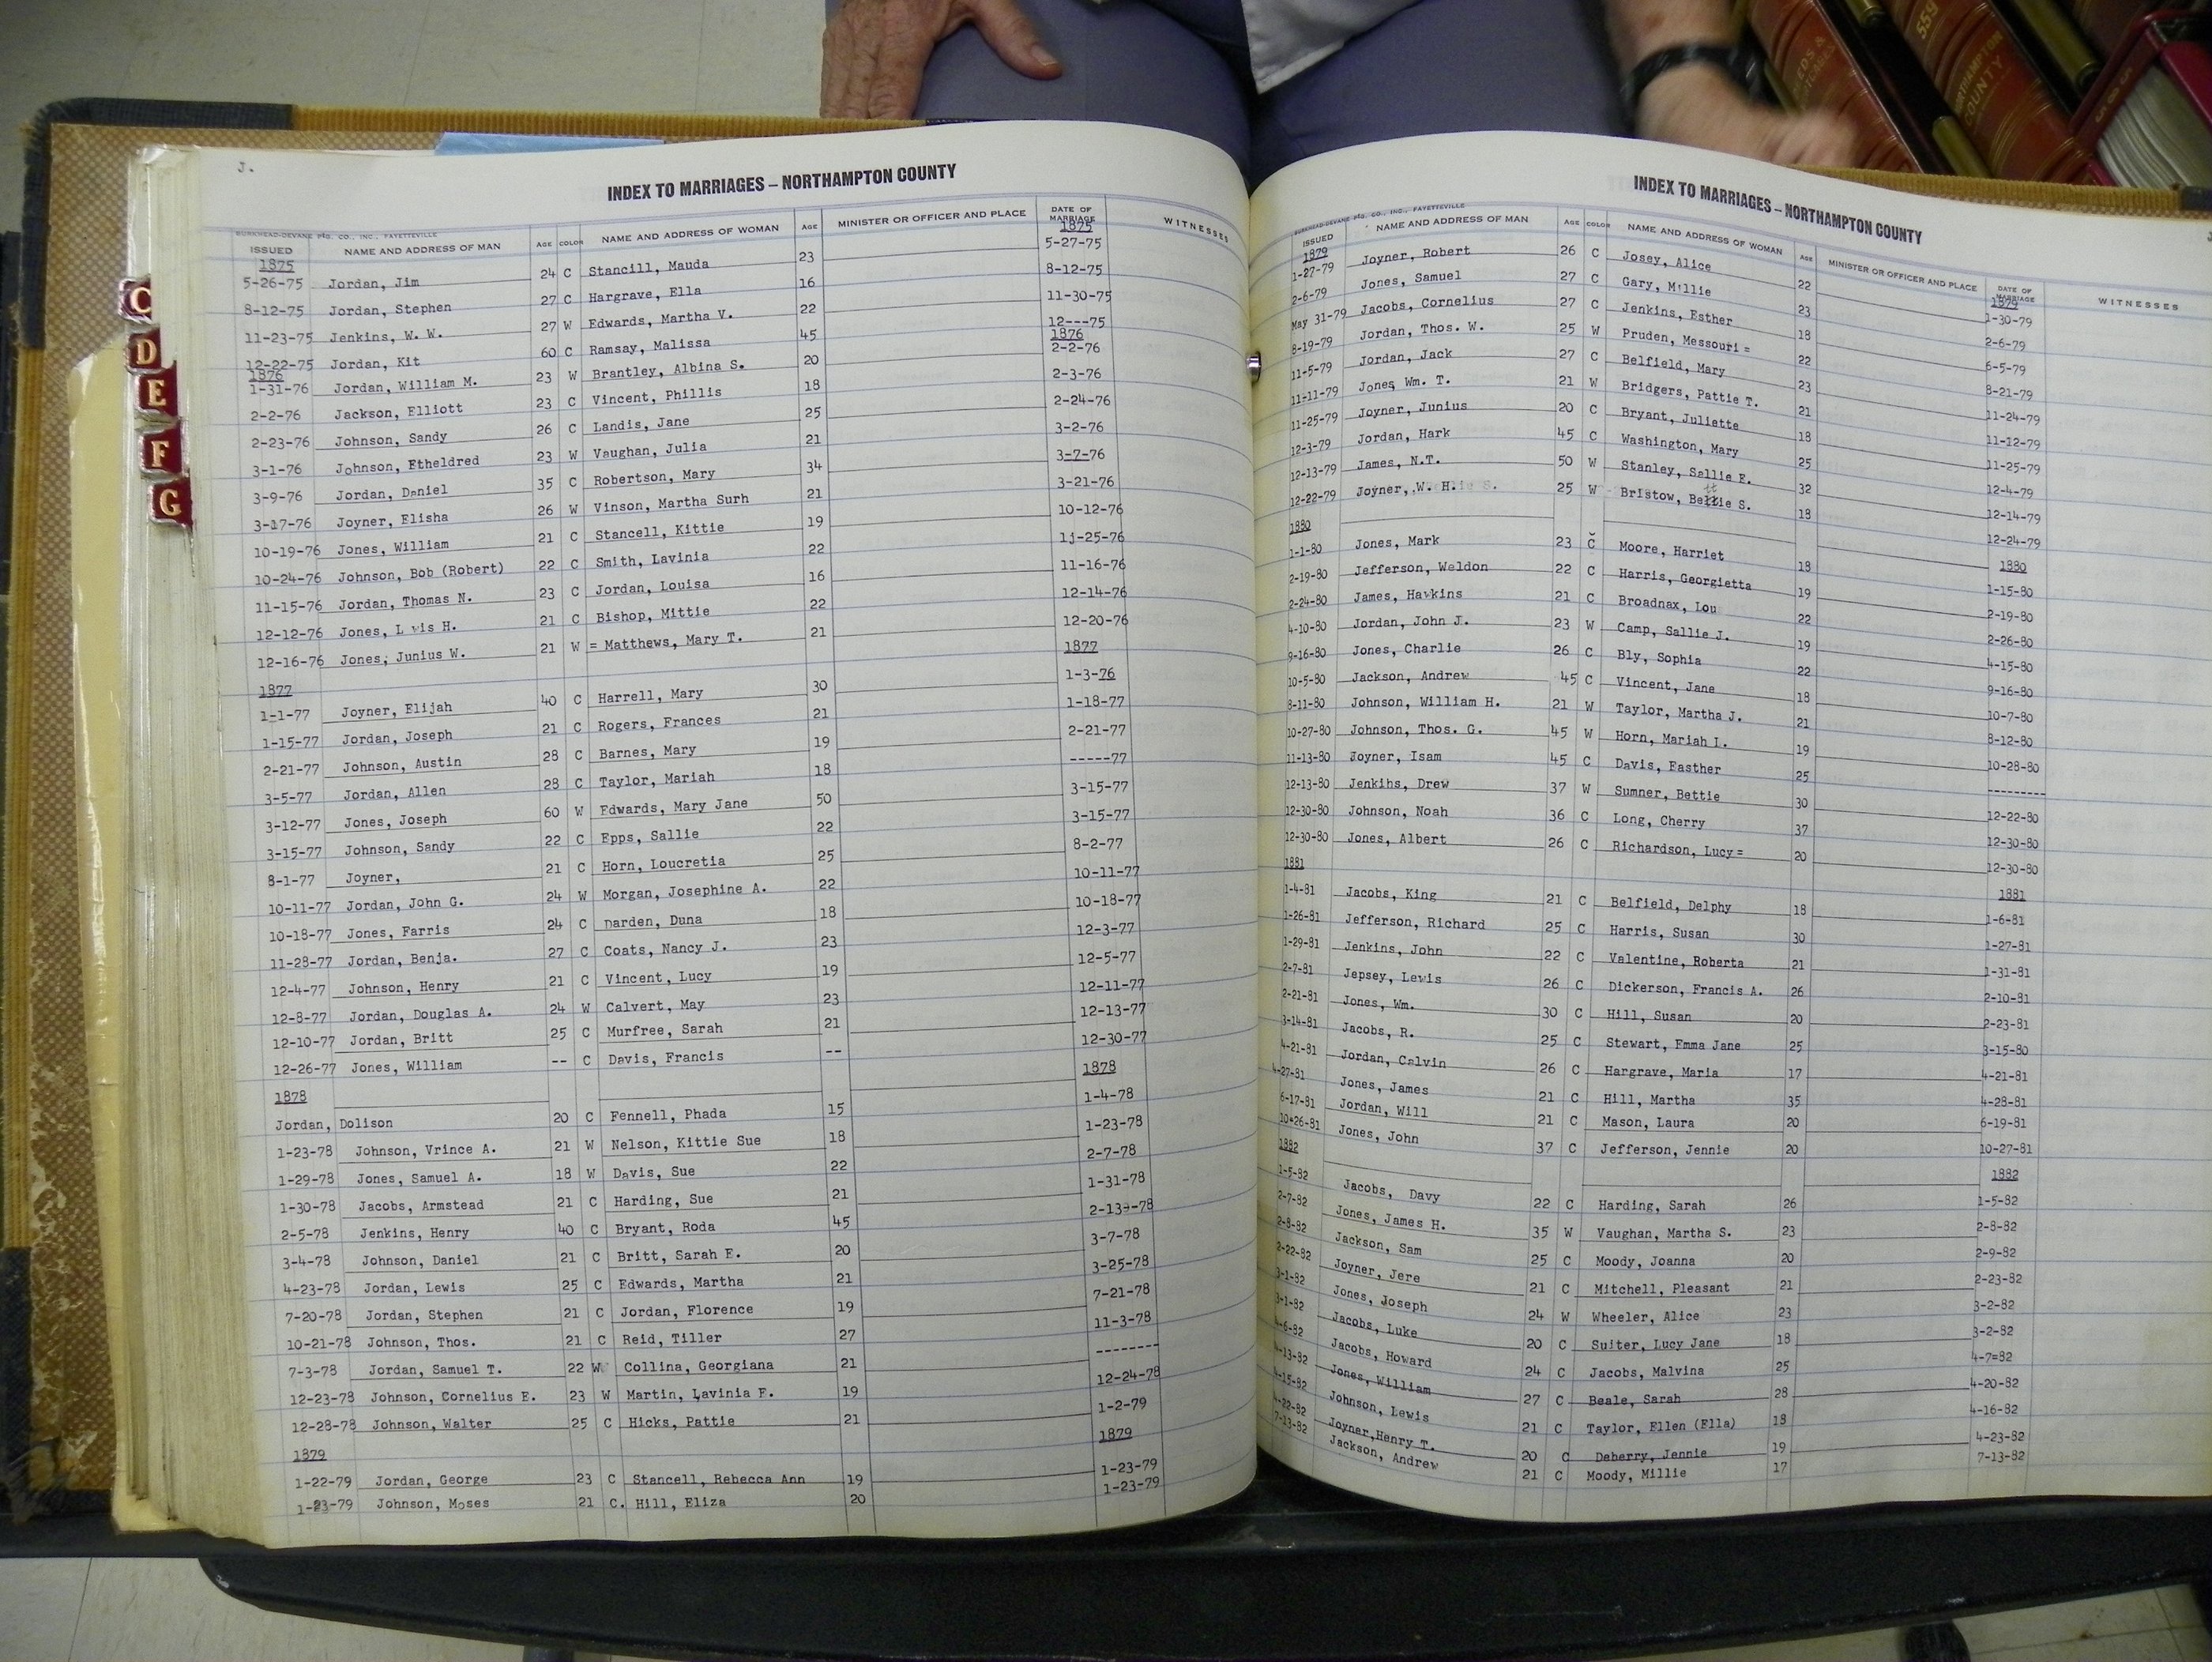 J.
INDEX TO MARRIAGES – NORTHAMPTON COUNTY
BURKHEAD-DEVANE PTG. CO., INC., FAYETTEVILLE
ISSUED NAME AND ADDRESS OF MAN AGE COLOR NAME AND ADDRESS OF WOMAN AGE MINISTER OR OFFICER AND PLACE DATE OF MARRIAGE WITNESSES
1875 1875
5-26-75 Jordan, Jim 24 C Stancill, Mauda 23 5-27-75
8-12-75 Jordan, Stephen 27 C Hargrave, Ella 16 8-12-75
11-23-75 Jenkins, W. W. 27 W Edwards, Martha V. 22 11-30-75
12-22-75 Jordan, Kit 60 C Ramsay, Malissa 45 12---75
1876 1876
1-31-76 Jordan, William M. 23 W Brantley, Albina S. 20 2-2-76
2-2-76 Jackson, Elliott 23 C Vincent, Phillis 18 2-3-76
2-23-76 Johnson, Sandy 26 C Landis, Jane 25 2-24-76
3-1-76 Johnson, Etheldred 23 W Vaughan, Julia 21 3-2-76
3-9-76 Jordan, Daniel 35 C Robertson, Mary 34 3-7-76
3-17-76 Joyner, Elisha 26 W Vinson, Martha Surh 21 3-21-76
10-19-76 Jones, William 21 C Stancell, Kittie 19 10-12-76
10-24-76 Johnson, Bob (Robert) 22 C Smith, Lavinia 22 11-25-76
11-15-76 Jordan, Thomas N. 23 C Jordan, Louisa 16 11-16-76
12-12-76 Jones, L wis H. 21 C Bishop, Mittie 22 12-14-76
12-16-76 Jones, Junius W. 21 W = Matthews, Mary T. 21 12-20-76
1877 1877
1-1-77 Joyner, Elijah 40 C Harrell, Mary 30 1-3-76
1-15-77 Jordan, Joseph 21 C Rogers, Frances 21 1-18-77
2-21-77 Johnson, Austin 28 C Barnes, Mary 19 2-21-77
3-5-77 Jordan, Allen 28 C Taylor, Mariah 18 -----77
3-12-77 Jones, Joseph 60 W Edwards, Mary Jane 50 3-15-77
3-15-77 Johnson, Sandy 22 C Epps, Sallie 22 3-15-77
8-1-77 Joyner, 21 C Horn, Loucretia 25 8-2-77
10-11-77 Jordan, John G. 24 W Morgan, Josephine A. 22 10-11-77
10-18-77 Jones, Farris 24 C Darden, Duna 18 10-18-77
11-28-77 Jordan, Benja. 27 C Coats, Nancy J. 23 12-3-77
12-4-77 Johnson, Henry 21 C Vincent, Lucy 19 12-5-77
12-8-77 Jordan, Douglas A. 24 W Calvert, May 23 12-11-77
12-10-77 Jordan, Britt 25 C Murfree, Sarah 21 12-13-77
12-26-77 Jones, William -- C Davis, Francis -- 12-30-77
1878 1878
Jordan, Dolison 20 C Fennell, Phada 15 1-4-78
1-23-78 Johnson, Vrince A. 21 W Nelson, Kittie Sue 18 1-23-78
1-29-78 Jones, Samuel A. 18 W Davis, Sue 22 2-7-78
1-30-78 Jacobs, Armstead 21 C Harding, Sue 21 1-31-78
2-5-78 Jenkins, Henry 40 C Bryant, Roda 45 2-13-78
3-4-78 Johnson, Daniel 21 C Britt, Sarah E. 20 3-7-78
4-23-78 Jordan, Lewis 25 C Edwards, Martha 21 3-25-78
7-20-78 Jordan, Stephen 21 C Jordan, Florence 19 7-21-78
10-21-78 Johnson, Thos. 21 C Reid, Tiller 27 11-3-78
7-3-78 Jordan, Samuel T. 22 W Collina, Georgiana 21 --------
12-23-78 Johnson, Cornelius E. 23 W Martin, Lavinia F. 19 12-24-78
12-28-78 Johnson, Walter 25 C Hicks, Pattie 21 1-2-79
1879 1879
1-22-79 Jordan, George 23 C Stancell, Rebecca Ann 19 1-23-79
1-23-79 Johnson, Moses 21 C. Hill, Eliza 20 1-23-79
INDEX TO MARRIAGES – NORTHAMPTON COUNTY
BURKHEAD-DEVANE PTG. CO., INC., FAYETTEVILLE
ISSUED NAME AND ADDRESS OF MAN AGE COLOR NAME AND ADDRESS OF WOMAN AGE MINISTER OR OFFICER AND PLACE DATE OF MARRIAGE WITNESSES
1879 1879
1-27-79 Joyner, Robert 26 C Josey, Alice 22 1-30-79
2-6-79 Jones, Samuel 27 C Gary, Millie 23 2-6-79
May 31-79 Jacobs, Cornelius 27 C Jenkins, Esther 18 6-5-79
8-19-79 Jordan, Thos. W. 25 W Pruden, Messouri = 22 8-21-79
11-5-79 Jordan, Jack 27 C Belfield, Mary 23 11-24-79
11-11-79 Jones, Wm. T. 21 W Bridgers, Pattie T. 21 11-12-79
11-25-79 Joyner, Junius 20 C Bryant, Juliette 18 11-25-79
12-3-79 Jordan, Hark 45 C Washington, Mary 25 12-4-79
12-13-79 James, N.T. 50 W Stanley, Sallie E. 32 12-14-79
12-22-79 Joyner, W. H. 25 W Bristow, Bettie S. 18 12-24-79
1880 1880
1-1-80 Jones, Mark 23 C Moore, Harriet 18 1-15-80
2-19-80 Jefferson, Weldon 22 C Harris, Georgietta 19 2-19-80
2-24-80 James, Hawkins 21 C Broadnax, Lou 22 2-26-80
4-10-80 Jordan, John J. 23 W Camp, Sallie J. 19 4-15-80
9-16-80 Jones, Charlie 26 C Bly, Sophia 22 9-16-80
10-5-80 Jackson, Andrew 45 C Vincent, Jane 18 10-7-80
8-11-80 Johnson, William H. 21 W Taylor, Martha J. 21 8-12-80
10-27-80 Johnson, Thos. G. 45 W Horn, Mariah I. 19 10-28-80
11-13-80 Joyner, Isam 45 C Davis, Easther 25 ---------
12-13-80 Jenkihs, Drew 37 W Sumner, Bettie 30 12-22-80
12-30-80 Johnson, Noah 36 C Long, Cherry 37 12-30-80
12-30-80 Jones, Albert 26 C Richardson, Lucy = 20 12-30-80
1881 1881
1-4-81 Jacobs, King 21 C Belfield, Delphy 18 1-6-81
1-26-81 Jefferson, Richard 25 C Harris, Susan 30 1-27-81
1-29-81 Jenkins, John 22 C Valentine, Roberta 21 1-31-81
2-7-81 Jepsey, Lewis 26 C Dickerson, Francis A. 26 2-10-81
2-21-81 Jones, Wm. 30 C Hill, Susan 20 2-23-81
3-14-81 Jacobs, R. 25 C Stewart, Emma Jane 25 3-15-80
4-21-81 Jordan, Calvin 26 C Hargrave, Maria 17 4-21-81
4-27-81 Jones, James 21 C Hill, Martha 35 4-28-81
6-17-81 Jordan, Will 21 C Mason, Laura 20 6-19-81
10-26-81 Jones, John 37 C Jefferson, Jennie 20 10-27-81
1882 1882
1-5-82 Jacobs, Davy 22 C Harding, Sarah 26 1-5-82
2-7-82 Jones, James H. 35 W Vaughan, Martha S. 23 2-8-82
2-8-82 Jackson, Sam 25 C Moody, Joanna 20 2-9-82
2-22-82 Joyner, Jere 21 C Mitchell, Pleasant 21 2-23-82
3-1-82 Jones, Joseph 24 W Wheeler, Alice 23 3-2-82
3-1-82 Jacobs, Luke 20 C Suiter, Lucy Jane 18 3-2-82
4-6-82 Jacobs, Howard 24 C Jacobs, Malvina 25 4-7=82
4-13-82 Jones, William 27 C Beale, Sarah 28 4-20-82
4-15-82 Johnson, Lewis 21 C Taylor, Ellen (Ella) 18 4-16-82
4-22-82 Joyner, Henry T. 20 C Deberry, Jennie 19 4-23-82
7-13-82 Jackson, Andrew 21 C Moody, Millie 17 7-13-82
C
D
E
F
G
559
NORTHAMPTON
COUNTY